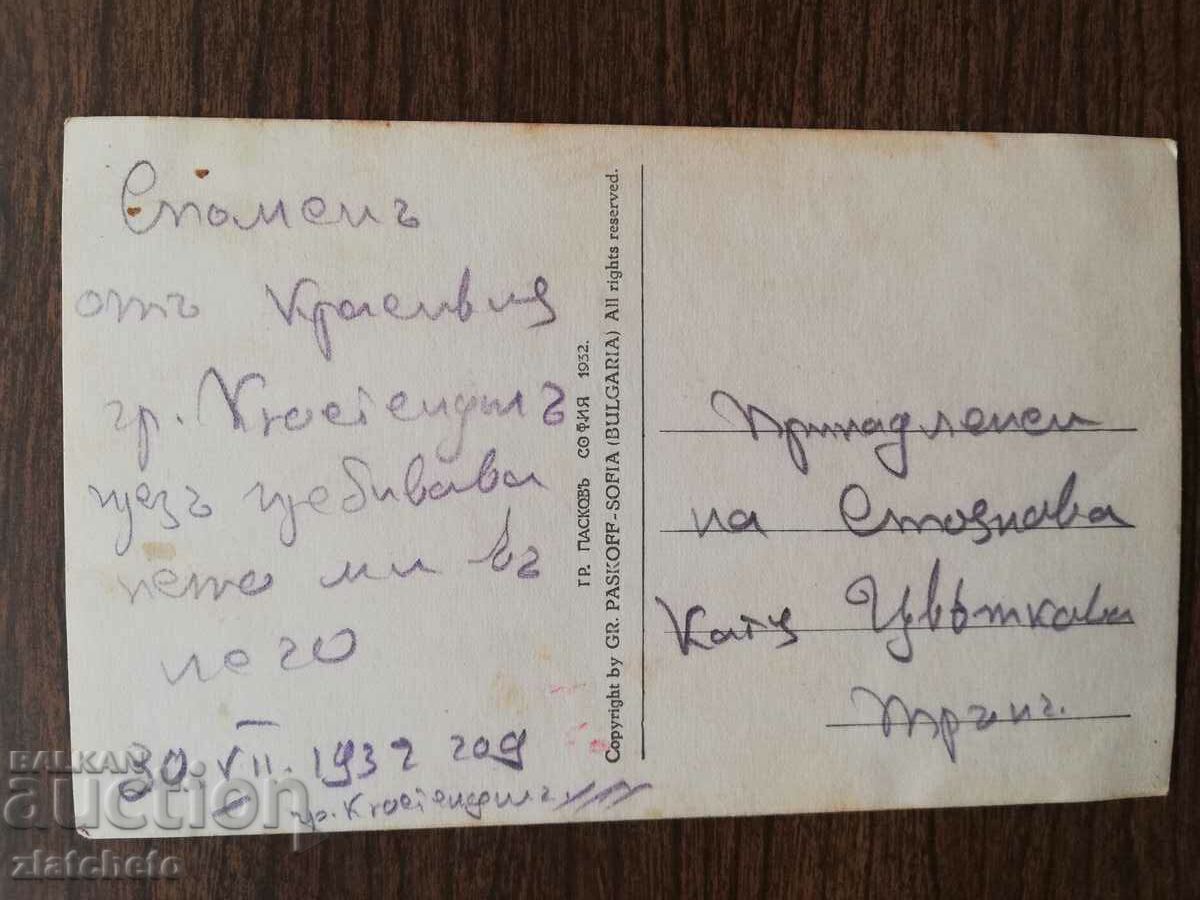 Споменъ
отъ Красивия
гр. Кюстендилъ
презъ пребива
нето ми въ
него
30. VII. 1932 год
гр. Кюстендилъ
ГР. ПАСКОВЪ СОФИЯ 1932.
Copyright by GR. PASKOFF-SOFIA (BULGARIA) All rights reserved.
Принадлежи
на Стоянова
Катя Цвѣткова
Трънъ.
BALKAN
auction
zlatcheto